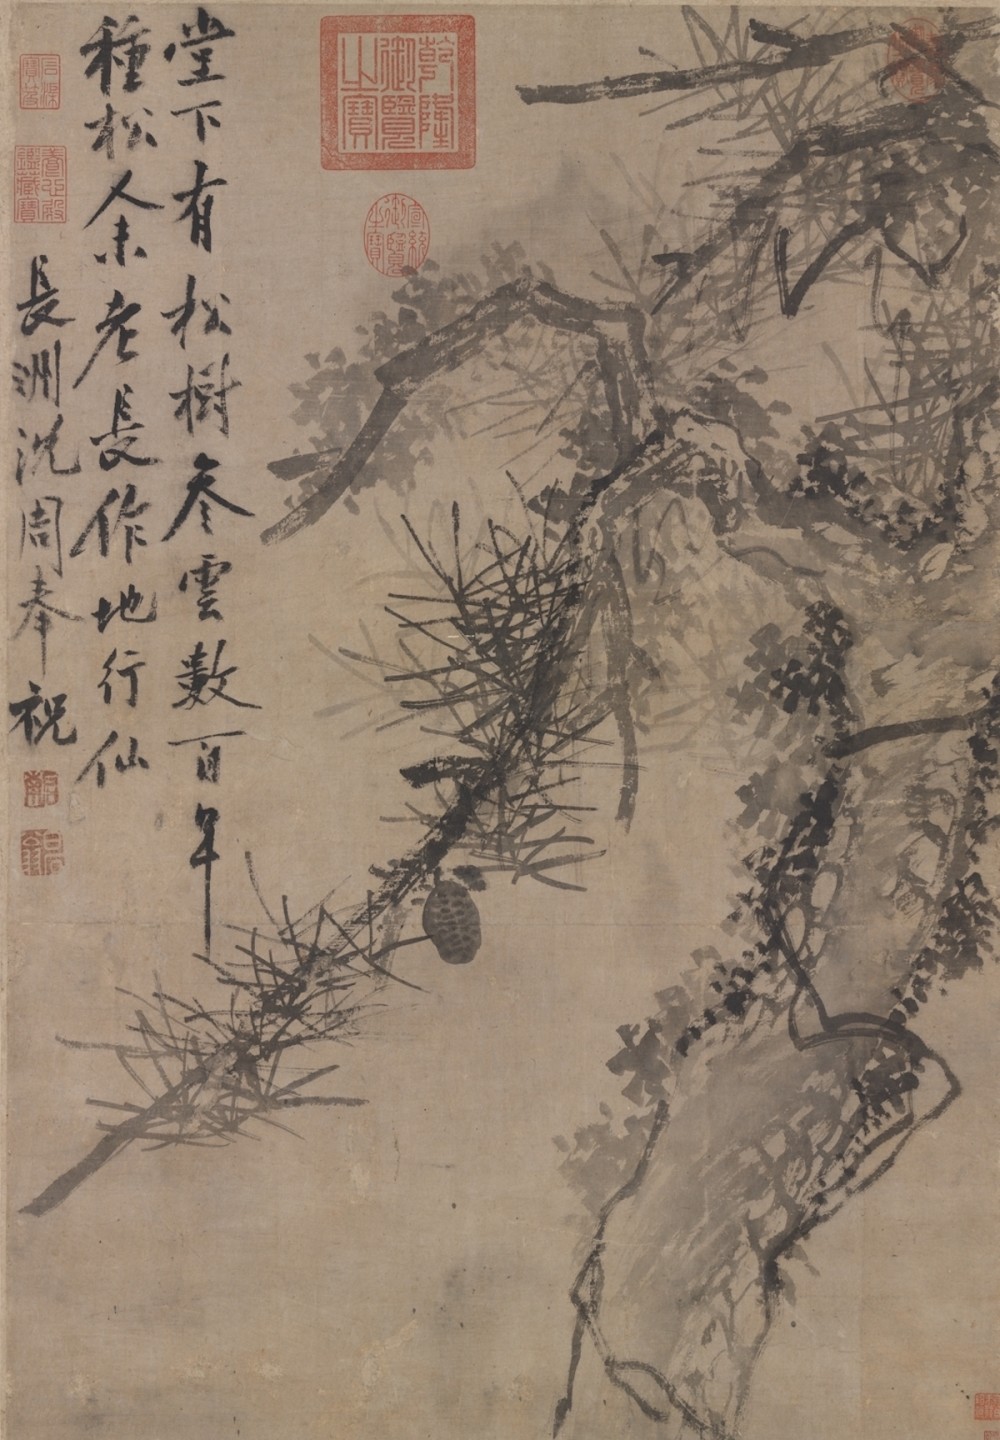 堂下有松樹參雲數百年
種松人未老長作地行仙
長洲沈周奉祝
乾隆御覽之寶